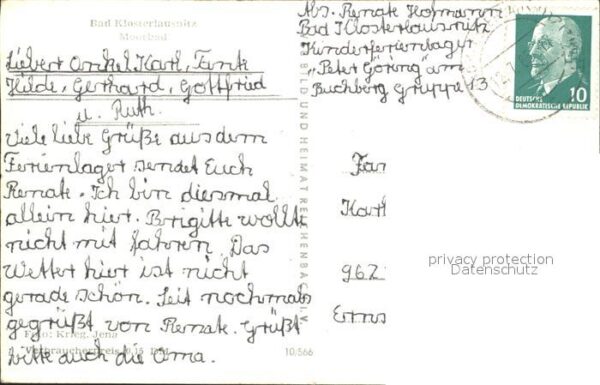 Bad Klosterlausnitz
Moorbad
Liebert Onkel Karl, Tante
Hilde, Gerhard, Gottfried
u. Ruth.
Viele liebe Grüße aus dem
Ferienlager sendet Euch
Renate. Ich bin diesmal
allein hier. Brigitte wollte
nicht mit fahren. Das
Wetter hier ist nicht
gerade schön. Seit nochmals
gegrüßt von Renate. Grüßt
bitte auch die Oma.
Foto: Krieg, Jena
Verbraucherpreis 0,15
10/566
BILD UND HEIMAT REICHENBACH I. V.
Abs. Renate Hofmann
Bad Klosterlausnitz
Kinderferienlager
„Peter Göring" am
Buchberg Gruppe 13
DEUTSCHE
DEMOKRATISCHE REPUBLIK
10
Fam
Karl
962
Erns
privacy protection
Datenschutz